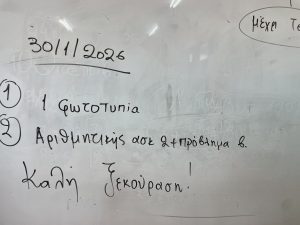 μέχρι
30/1/2026
① 1 φωτοτυπία
② Αριθμητικής ασκ 2 + πρόβλημα β.
Καλή ξεκούραση!